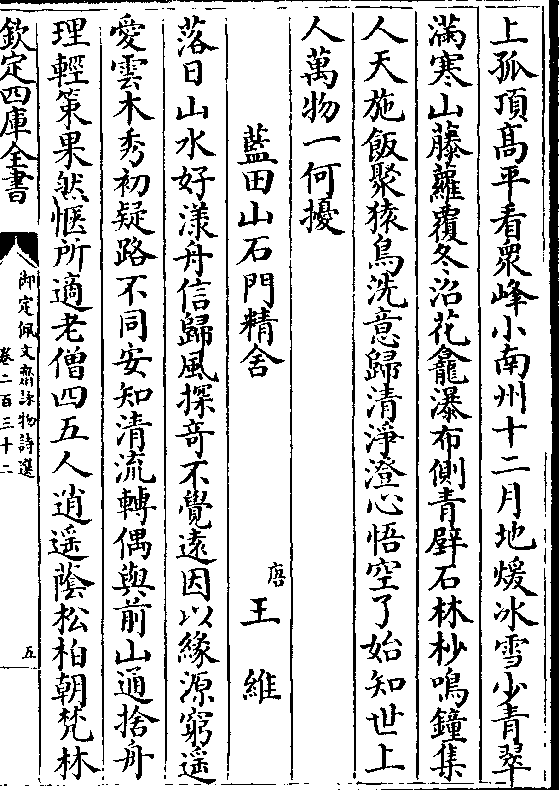 上孤頂髙平看衆峰小南州十二月地煖冰雪少青翠
滿寒山藤蘿覆冬沼花龕瀑布側青壁石林杪鳴鐘集
人天施飯聚猿鳥洗意歸清淨澄心悟空了始知世上
人萬物一何擾
藍田山石門精舍
唐
王維
落日山水好漾舟信歸風探竒不覺遠因以緣源窮遥
愛雲木秀初疑路不同安知清流轉偶與前山通捨舟
理輕策果然愜所適老僧四五人逍遥蔭松柏朝梵林
欽定四庫全書
御定佩文齋詠物詩選
卷二百三十二
五